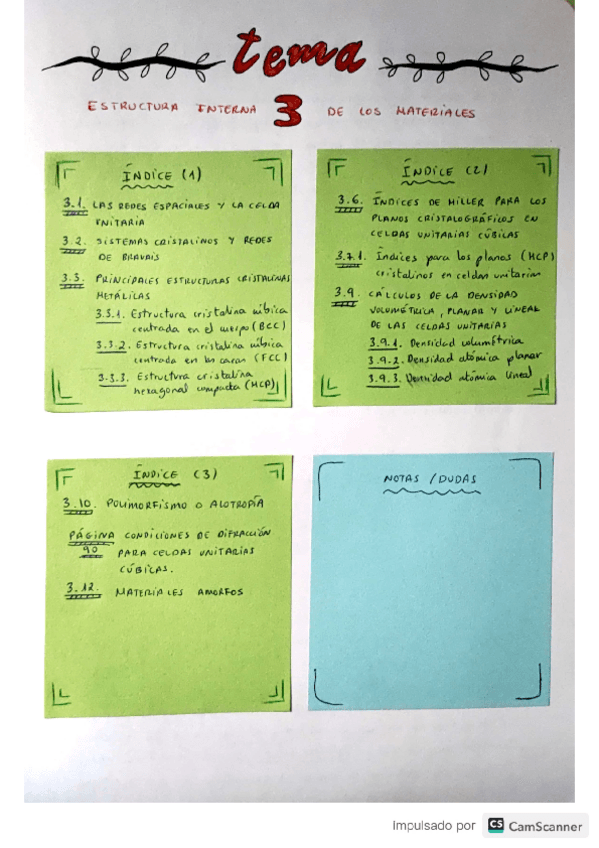 tema
ESTRUCTURA INTERNA 3 DE LOS MATERIALES
ÍNDICE (1)
3.1. LAS REDES ESPACIALES Y LA CELDA
UNITARIA
3.2. SISTEMAS CRISTALINOS Y REDES
DE BRAVAIS
3.3. PRINCIPALES ESTRUCTURAS CRISTALINAS
METÁLICAS
3.3.1. Estructura cristalina cúbica
centrada en el cuerpo (BCC)
3.3.2. Estructura cristalina cúbica
centrada en las caras (FCC)
3.3.3. Estructura cristalina
hexagonal compacta (HCP)
ÍNDICE (2)
3.6. ÍNDICES DE MILLER PARA LOS
PLANOS CRISTALOGRÁFICOS EN
CELDAS UNITARIAS CÚBICAS
3.7.1. Índices para los planos (HCP)
cristalinos en celdas unitarias
3.9. CÁLCULOS DE LA DENSIDAD
VOLUMÉTRICA, PLANAR Y LINEAL
DE LAS CELDAS UNITARIAS
3.9.1. Densidad volumétrica
3.9.2. Densidad atómica planar
3.9.3. Densidad atómica lineal
ÍNDICE (3)
3.10. POLIMORFISMO O ALOTROPÍA
PÁGINA CONDICIONES DE DIFRACCIÓN
90 PARA CELDAS UNITARIAS
CÚBICAS.
3.12. MATERIALES AMORFOS
NOTAS / DUDAS
Impulsado por CS CamScanner